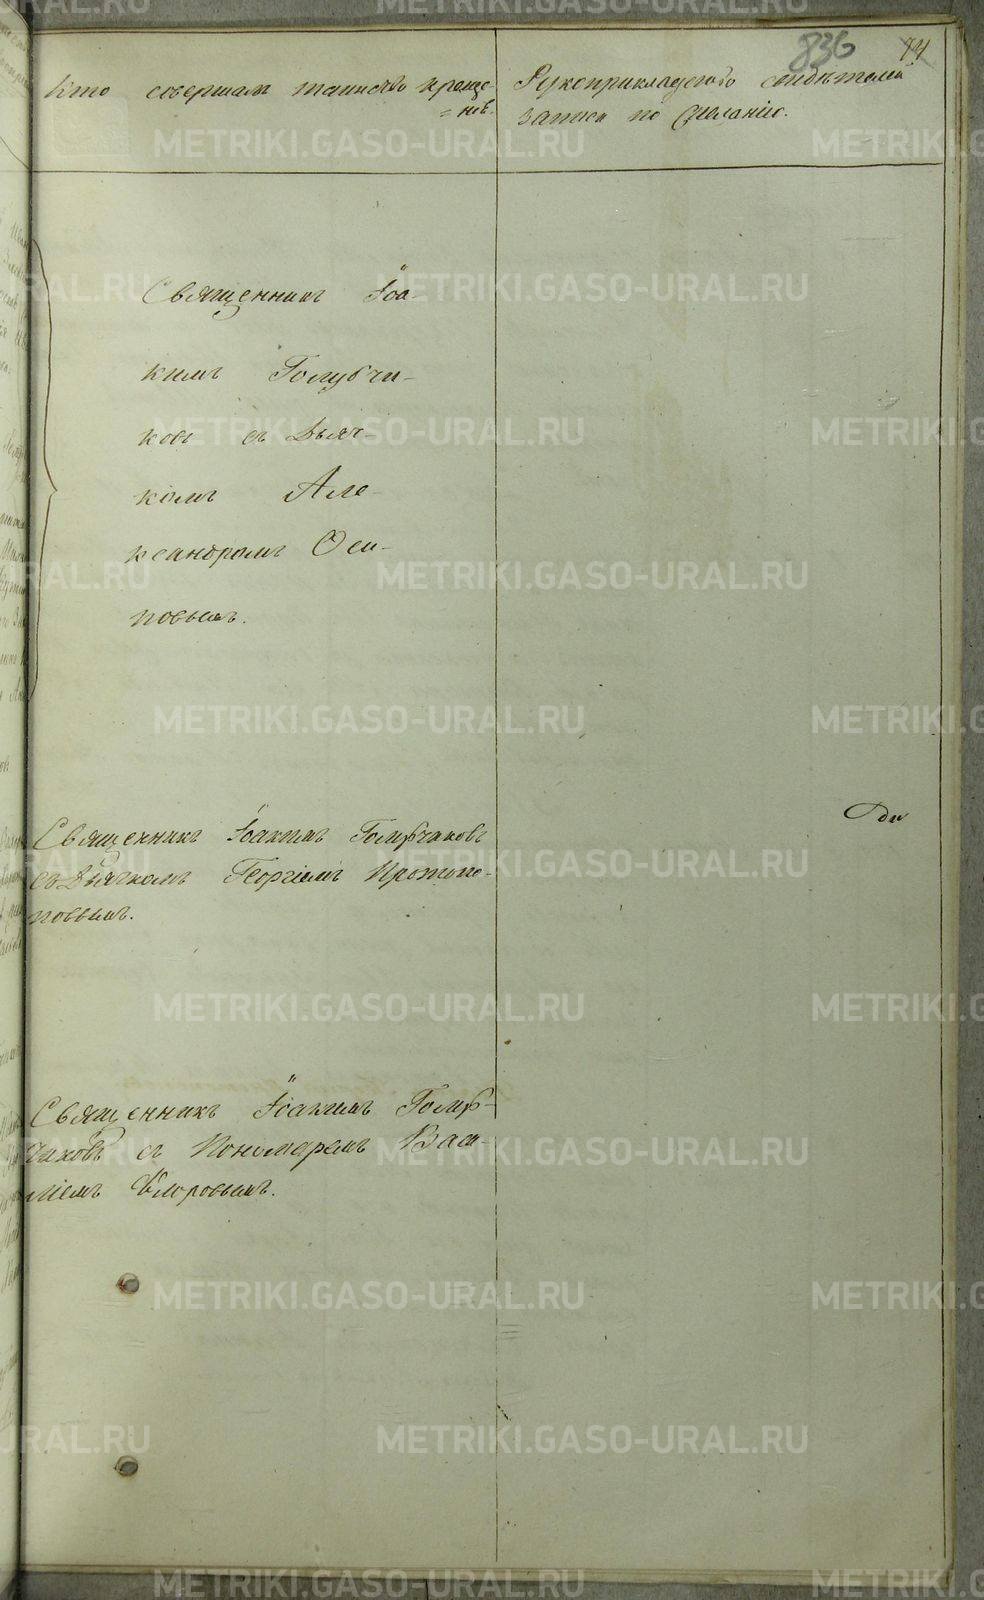 836 74
Кто совершалъ таинство креще-
=нія.
Рукоприкладство свидѣтелей
записи по желанію.
Священникъ Іоа-
кимъ Голубчи-
ковъ съ Дьяч-
комъ Але-
ксандромъ Оси-
повымъ.
Священникъ Іоакимъ Голубчиковъ
съ Дьячкомъ Георгіемъ Протопо-
повымъ.
Священникъ Іоакимъ Голуб-
чиковъ съ Пономаремъ Васи-
ліемъ
METRIKI.GASO-URAL.RU